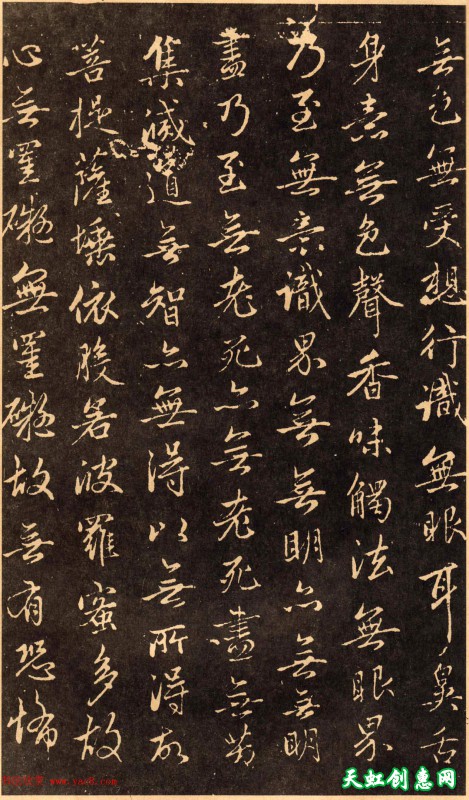 無色無受想行識無眼耳鼻舌
身意無色聲香味觸法無眼界
乃至無意識界無無明亦無無明
盡乃至無老死亦無老死盡無苦
集滅道無智亦無得以無所得故
菩提薩埵依般若波羅蜜多故
心無罣礙無罣礙故無有恐怖
www.yac8.com
天虹创惠网